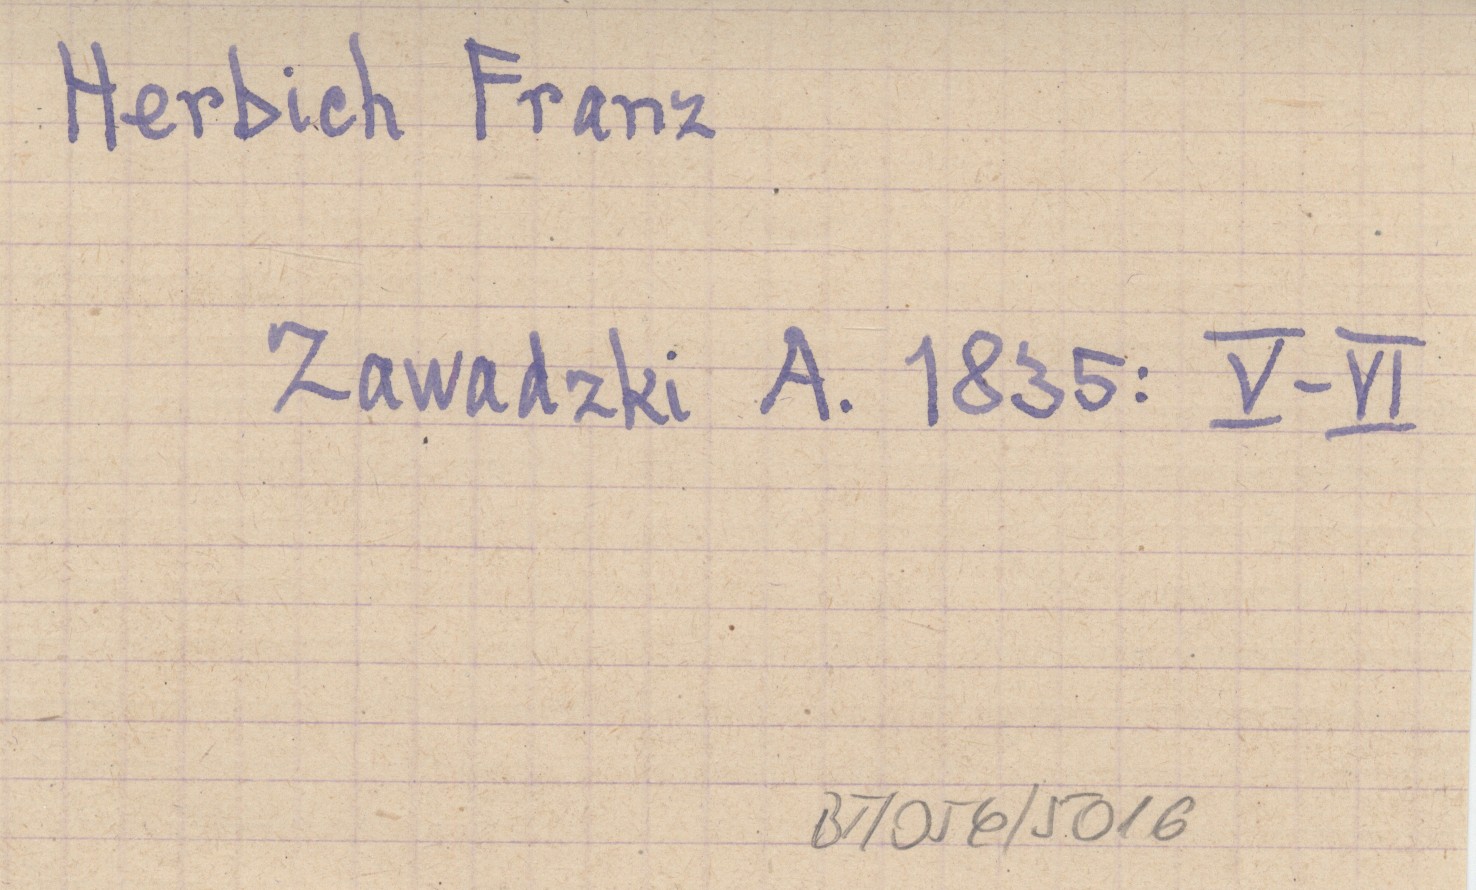 Herbich Franz
Zawadzki A. 1835: V-VI
BT/056/5016